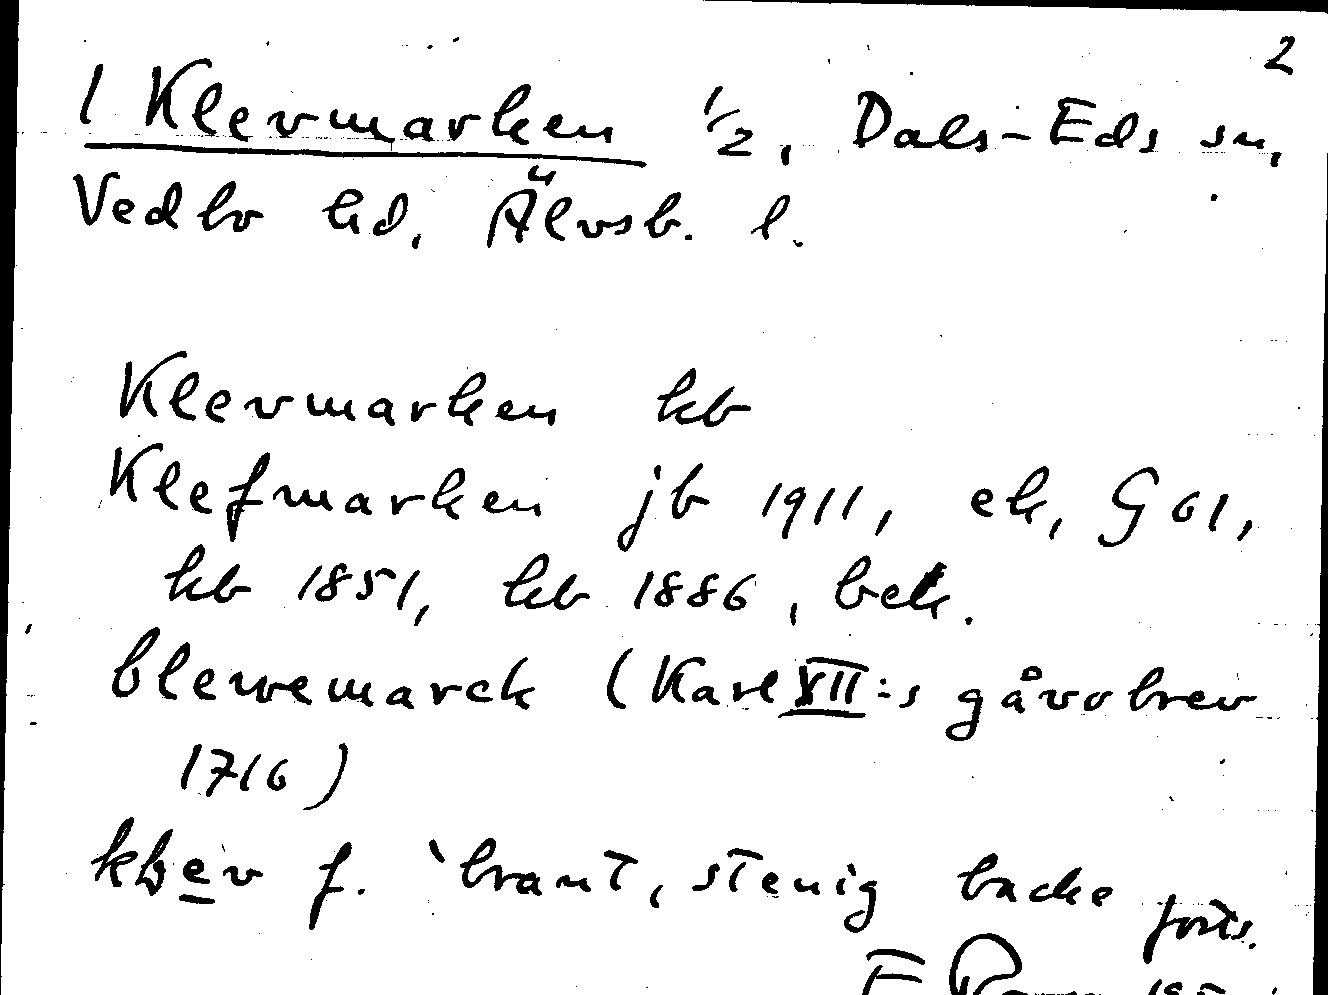 2
1 Klevmarken 1/2, Dals-Eds sn,
Vedbo hd, Älvsb. l.
Klevmarken kb
Klefmarken jb 1911, ek, G 61,
kb 1851, kb 1886, bek.
Clewemarck (Karl XII:s gåvobrev
1716)
f. `brant, stenig backe forts.